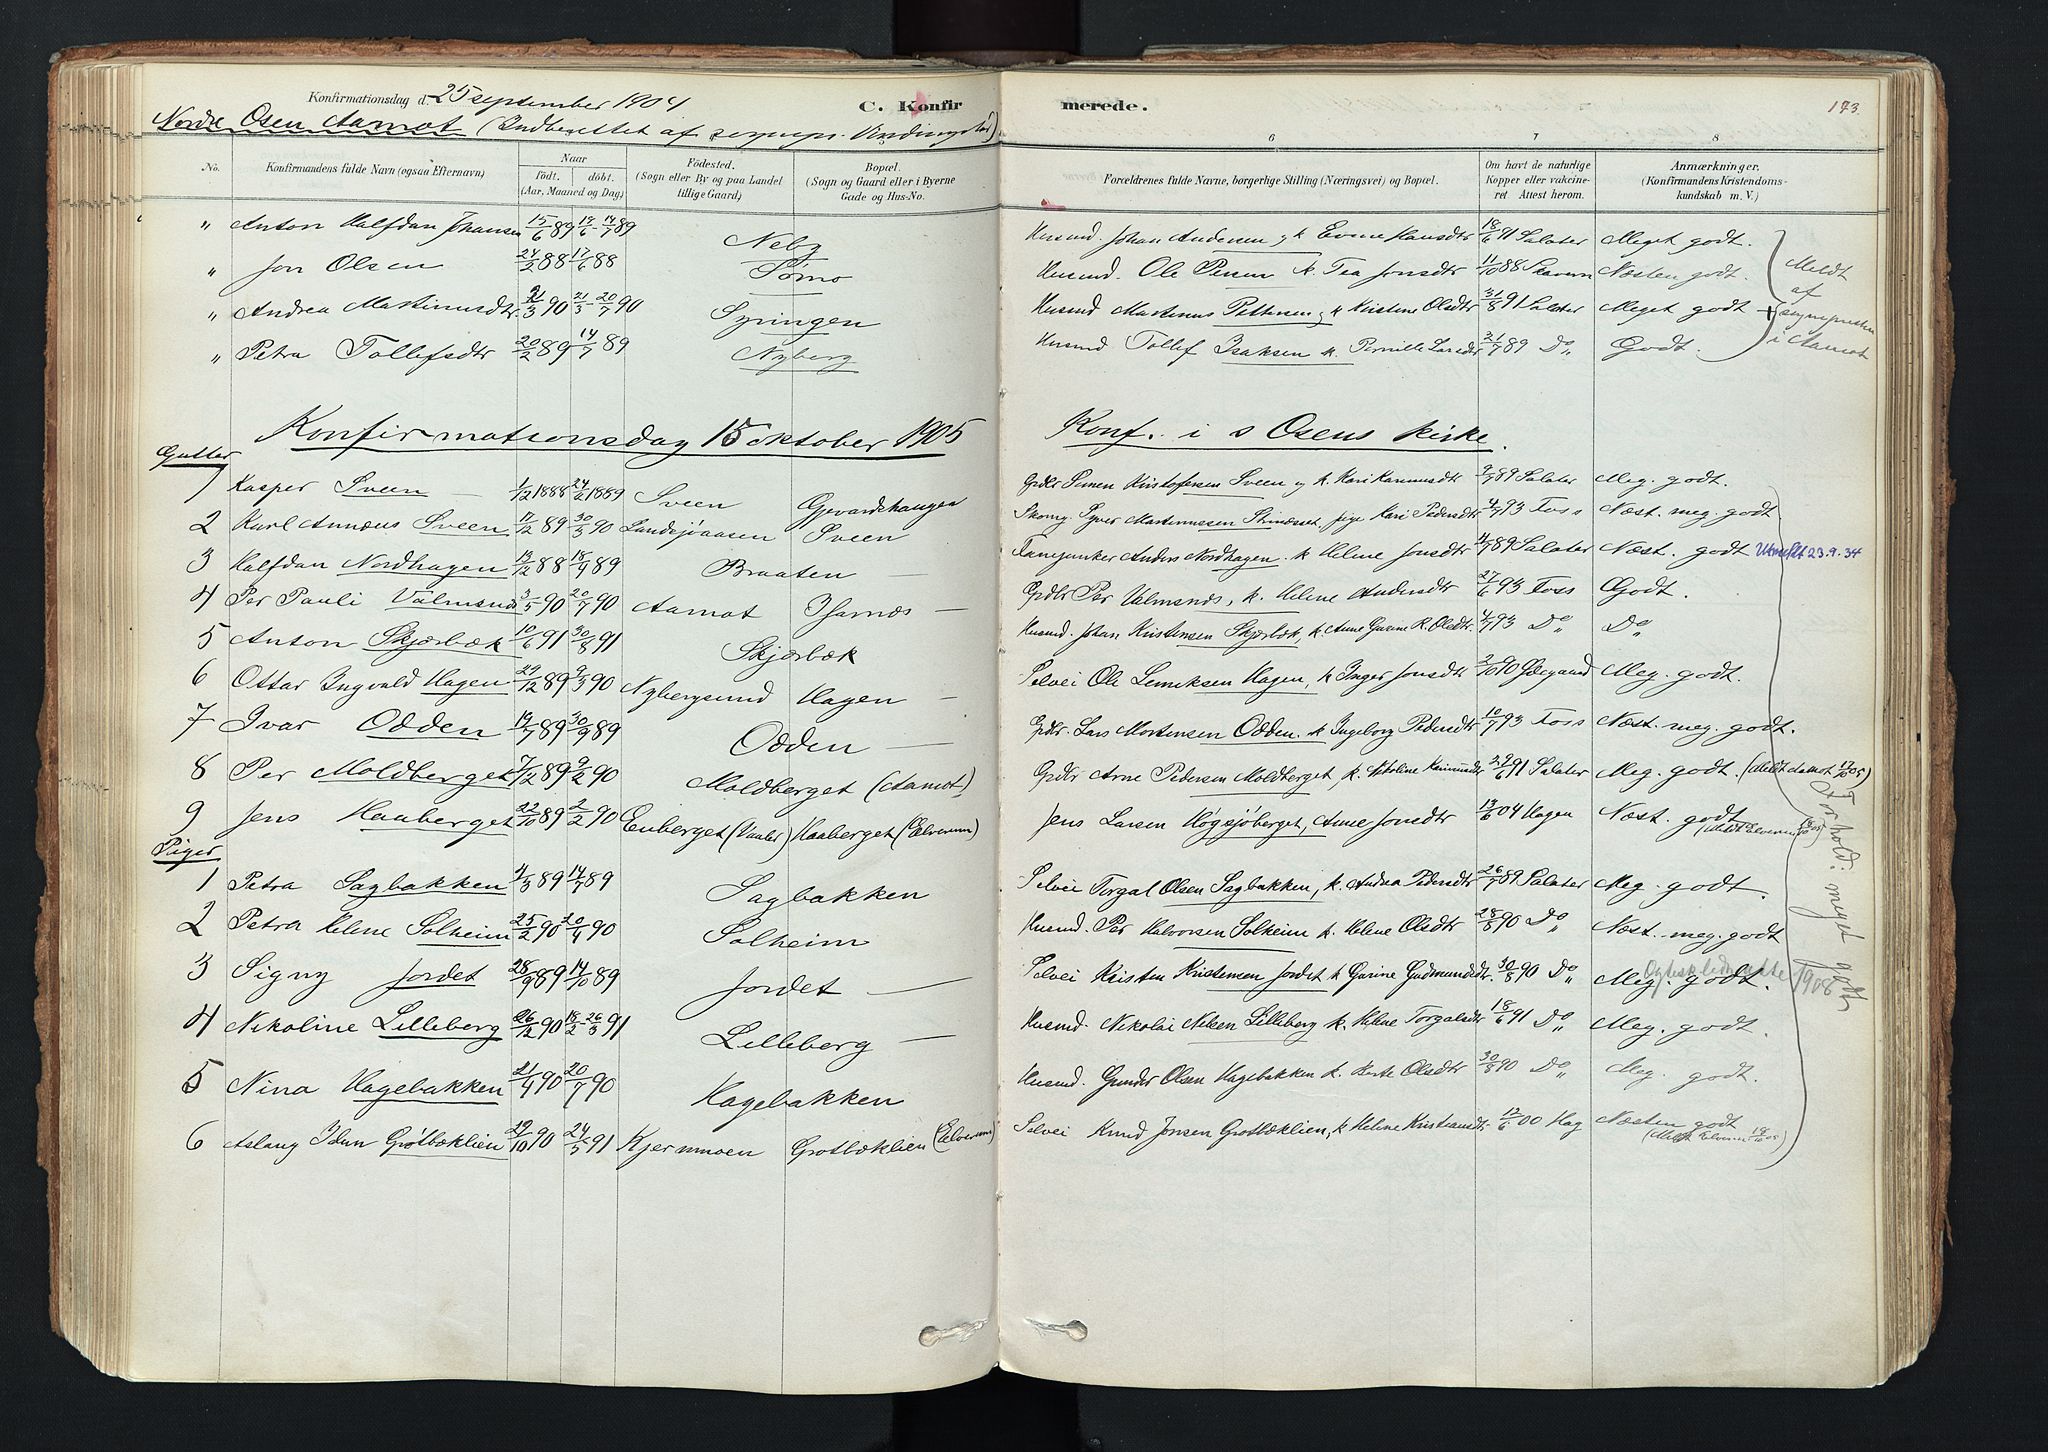 Konfirmationsdag d. 25 september 1904
C. Konfir merede. 173.
Nordre Osen Aamot (Indberettet af sognepr.
No. Konfirmandens fulde Navn (ogsaa Efternavn) Naar født. døbt. (Aar, Maaned og Dag) Fødested. (Sogn eller By og paa Landet tillige Gaard) Bopæl. (Sogn og Gaard eller i Byerne Gade og Hus-No. 6 Forældrenes fulde Navne, borgerlige Stilling (Næringsvei) og Bopæl. 7 Om havt de naturlige Kopper eller vakcineret. Attest herom. 8 Anmærkninger. (Konfirmandens Kristendomskundskab m. V.)
" Anton Halfdan Johansen 15/6 89 Neby Husmd. Johan Andersen og k. Hansdtr 18/6 91 Salater Meget godt.
" Jon Olsen 24/2 88 17/6 88 Sørmo Husmd. Ole Persen k. Tea Jonsdtr 11/10 88 Næsten godt.
" Andrea Martinusdtr 21/3 90 20/7 90 Syringen Husmd Martinus Pettersen og k Kristine Olsdtr 31/8 91 Salater Meget godt
" Petra Tollefsdtr 20/2 89 14/7 89 Nyberg Husmd Tollef Isaksen k. Pernille Larsdtr 21/7 89 Do " Godt.
Meldt af sognepresten i Aamot
Konfirmationsdag 15 oktober 1905 Konf. i s Osens kirke.
Gutter
1 Kasper Sveen 1/12 1888 24/2 1889 Sveen Gjevardshaugen Gpdbr Simen Kristofersen Sveen og k. Kari Rasmusdtr 9/7 89 Salater Meg. godt.
2 Karl Annæus Sveen 17/12 89 30/3 90 Landsjøaasen Sveen Martinussen pige Kari Pedersdtr 4/7 93 Foss Næst. meg. godt
3 Halfdan Nordhagen 13/12 88 18/9 89 Braaten Fanejunker Anders Nordhagen k. Helene Jonsdtr 4/7 89 Salater Næst. godt Utmeldt 23.9.34
4 Per Pauli Valmsnæs 3/5 90 20/7 90 Aamot Osarnæs Gpdbr Per Valmsnæs, k. Helene Andersdtr 27/6 93 Foss Godt.
5 Anton Skjærbæk 10/6 91 30/8 91 Skjærbæk Husmd. Johan Kristensen Skjærbæk, k. Anne Gurine R. Olsdtr 4/7 93 Do " Do "
6 Ottar Ingvald Hagen 29/12 89 9/3 90 Nybergsund Hagen Selvei Ole Lemiksen Hagen, k Inger Jonsdtr 2/10 90 Ødegaard Meg. godt.
7 Ivar Odden 19/7 89 30/9 89 Odden Gpdbr. Lars Mortensen Odden. k Ingeborg Pedersdtr 10/7 93 Foss Næst. meg. godt.
8 Per Moldberget 7/12 89 9/2 90 Moldberget (Aamot) Gpdbr Arne Pedersen Moldberget, k. Nikoline 29/6 91 Salater Meg. godt. (Meldt Aamot 17/10 05)
9 Jens Haaberget 22/10 89 2/2 90 Enberget (Vaaler) Haaberget (Elverum) Jens Larsen Høgsjøberget, Anne Jonsdtr 13/6 04 Hagen Næst. godt (Meldt Elverum 18/10 05)
Piger
1 Petra Sagbakken 4/3 89 14/7 89 Sagbakken Selvei Torgal Olsen Sagbakken, k. Andrea Pedersdtr 26/7 89 Salater Meg. godt.
2 Petra Helene Solheim 25/2 90 20/4 90 Solheim Husmd. Per Halvorsen Solheim k. Helene Olsdtr 28/8 90 Do " Næst. meg. godt
3 Signy Jordet 28/9 89 14/10 89 Jordet Selvei Kristen Kristensen Jordet k Gurine Gudmundsdtr. 30/8 90 Do " Meg. godt. 1908
4 Nikoline Lilleberg 26/12 90 18/2 - 26/3 91 Lilleberg Husmd. Nikolai Nilsen Lilleberg k. Helene Torgalsdtr 18/6 91 Do " Meg. godt.
5 Nina Hagebakken 21/4 90 20/7 90 Hagebakken Husmd. Gunder Olsen Hagebakken k. Berte Olsdtr 30/8 90 Do " Meg. godt.
6 Aslaug Idun Grøtbæklien 29/10 90 24/5 91 Kjernmoen Grøtbæklien (Elverum) Selvei Knud Jonsen Grøtbæklien, k Helene Kristiansdtr. 12/6 00 Hag Næsten godt (Meldt Elverum 18/10 05)
Forhold: meget godt